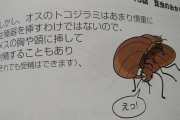 昆虫のおか
しかし、オスのトコジラミはあまり慎重に
器を挿すわけではないので、
メスの胸や頭に挿して
することもあり
それでも受精はできます)。
えっ!